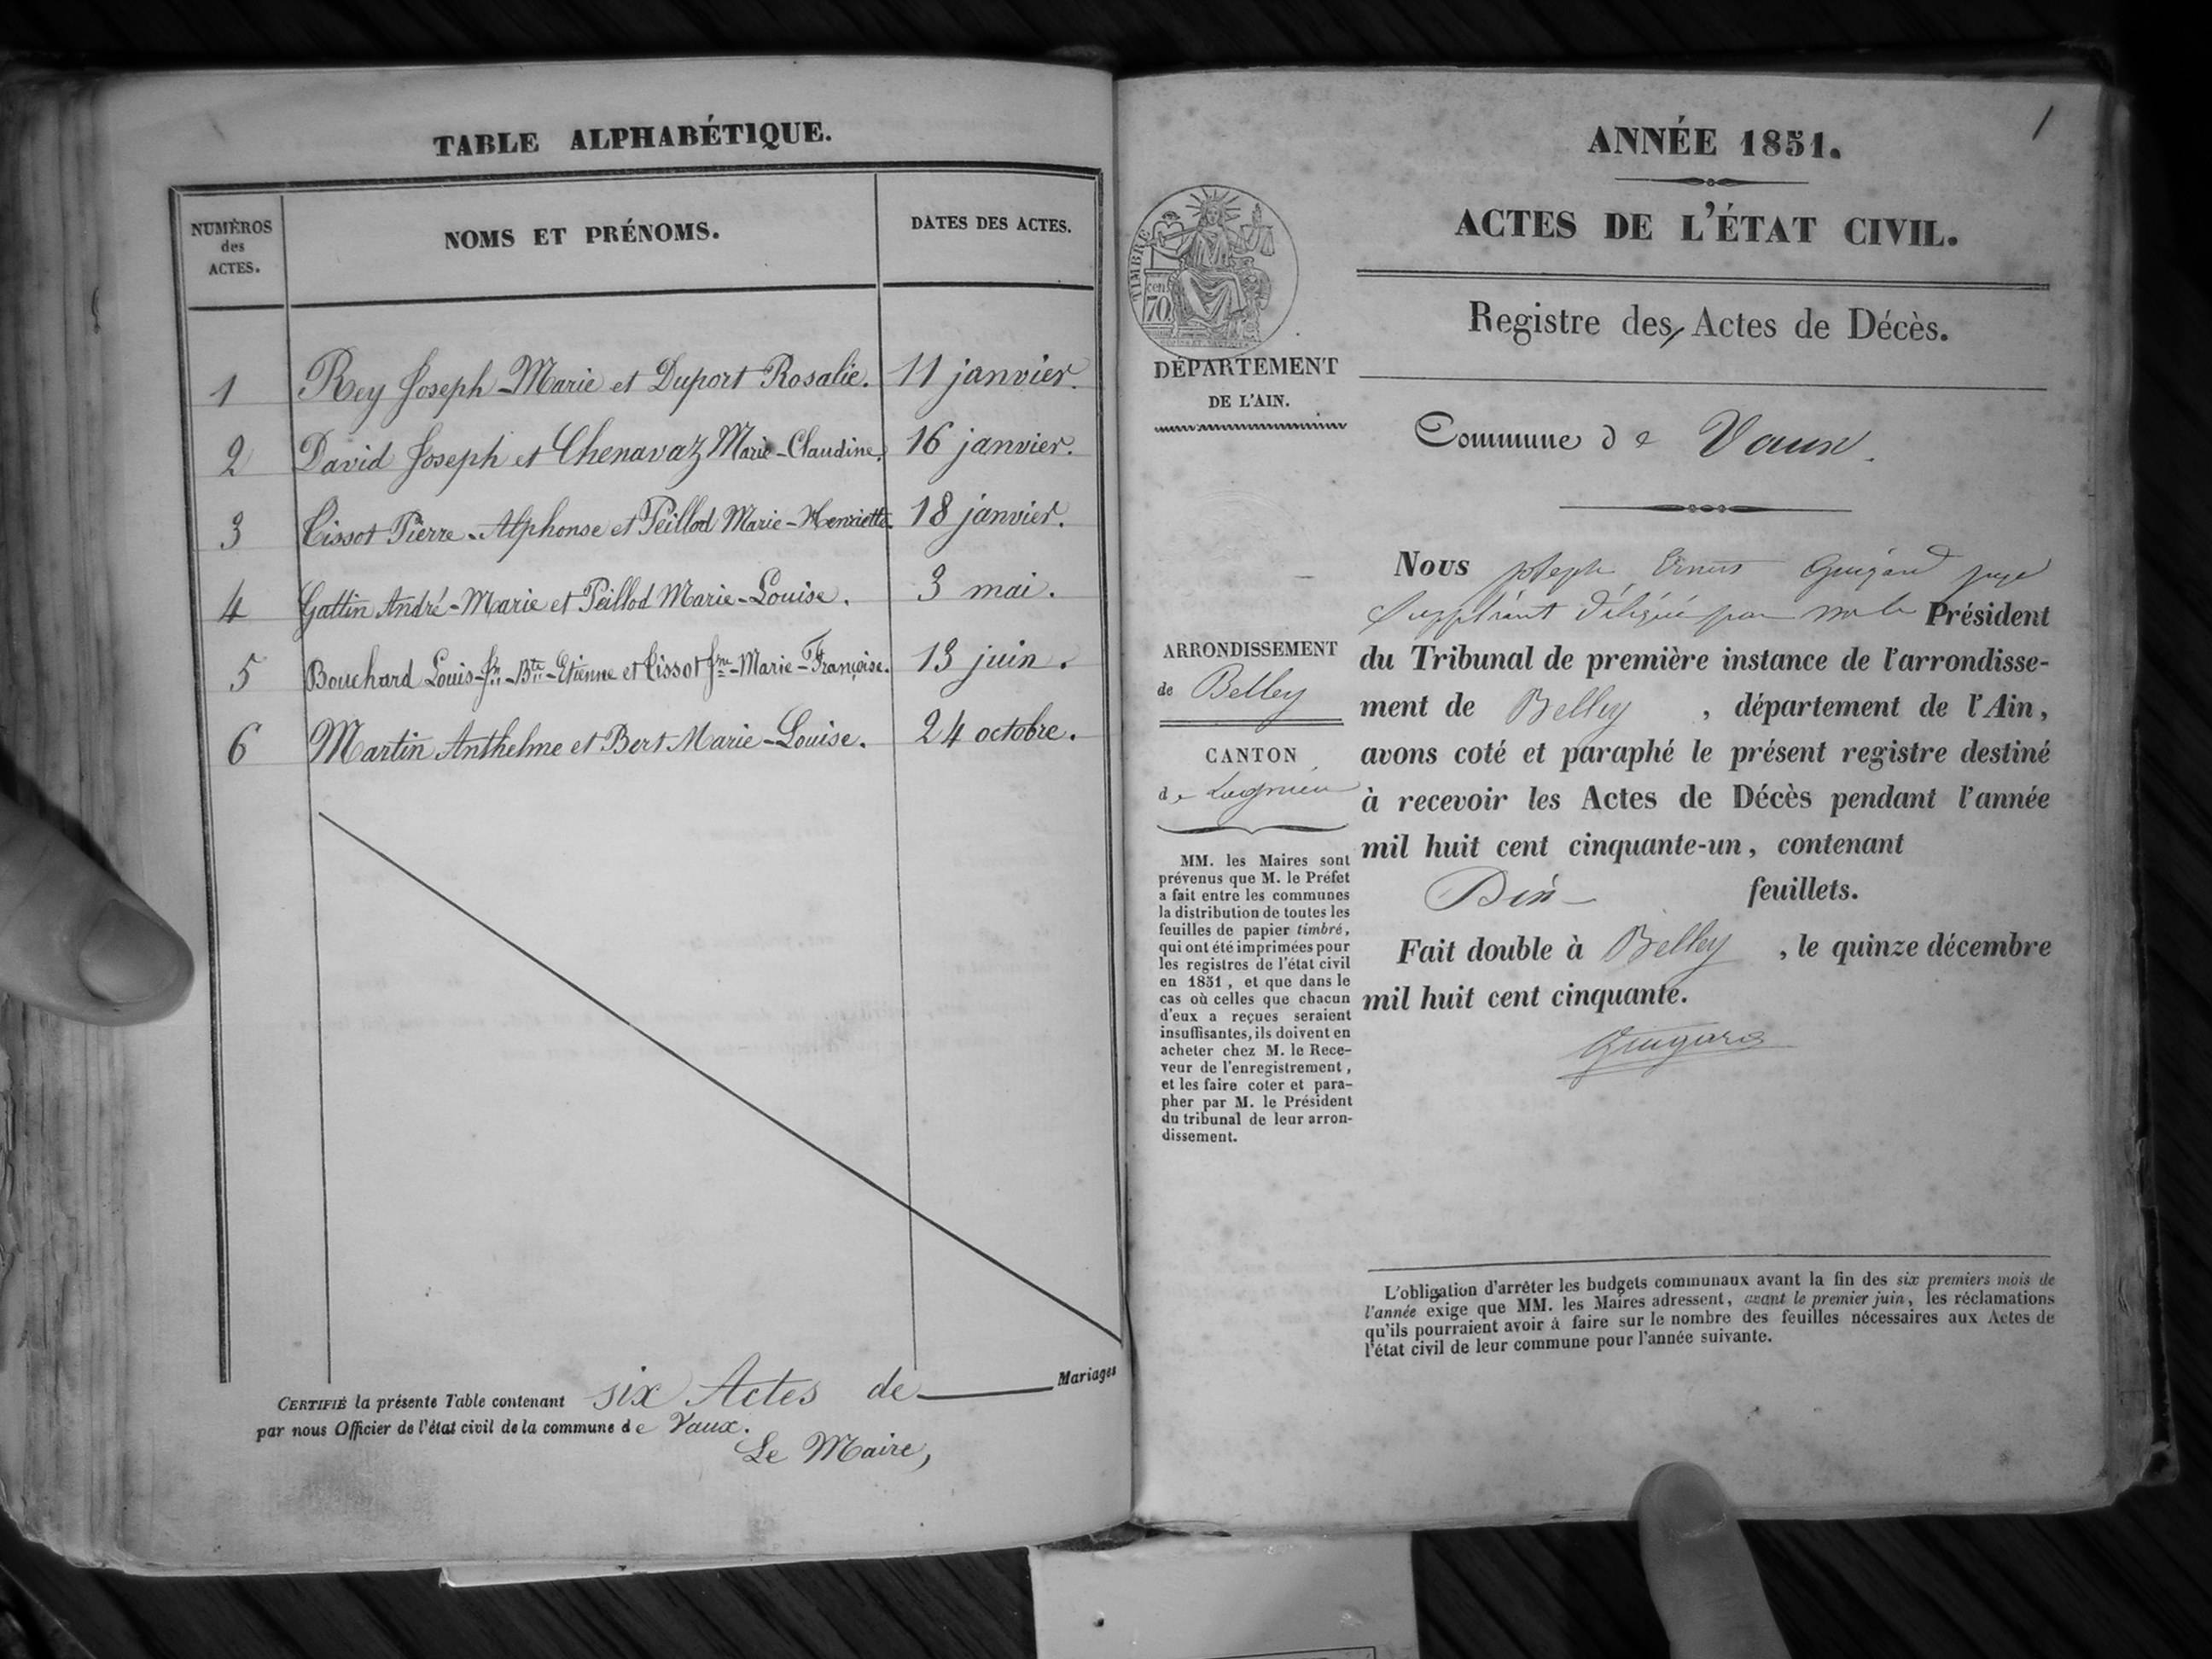 TABLE ALPHABÉTIQUE.
NUMÉROS
des
ACTES.
NOMS ET PRÉNOMS.
DATES DES ACTES.
1 Rey Joseph-Marie et Duport Rosalie. 11 janvier.
2 David Joseph et Chenavaz Marie-Claudine. 16 janvier.
3 Tissot Pierre-Alphonse et Peillod Marie-Henriette. 18 janvier.
4 Gattin André-Marie et Peillod Marie-Louise. 3 mai.
5 Bouchard Louis-Jn-Bte-Etienne et Tissot Jne-Marie-Françoise. 13 juin.
6 Martin Anthelme et Bert Marie-Louise. 24 octobre.
CERTIFIÉ la présente Table contenant six Actes de Mariages
par nous Officier de l'état civil de la commune de Vaux.
Le Maire,
1
ANNÉE 1851.
ACTES DE L'ÉTAT CIVIL.
TIMBRE
cen
70
Registre des Actes de Décès.
DÉPARTEMENT
DE L'AIN.
Commune de Vaux.
ARRONDISSEMENT
de Belley
CANTON
de Lagnieu
MM. les Maires sont
prévenus que M. le Préfet
a fait entre les communes
la distribution de toutes les
feuilles de papier timbré,
qui ont été imprimées pour
les registres de l'état civil
en 1851, et que dans le
cas où celles que chacun
d'eux a reçues seraient
insuffisantes, ils doivent en
acheter chez M. le Rece-
veur de l'enregistrement,
et les faire coter et para-
pher par M. le Président
du tribunal de leur arron-
dissement.
Nous Joseph Guigard juge
suppléant délégué par mr le Président
du Tribunal de première instance de l'arrondisse-
ment de Belley, département de l'Ain,
avons coté et paraphé le présent registre destiné
à recevoir les Actes de Décès pendant l'année
mil huit cent cinquante-un, contenant
Dix feuillets.
Fait double à Belley, le quinze décembre
mil huit cent cinquante.
Guigard
L'obligation d'arrêter les budgets communaux avant la fin des six premiers mois de
l'année exige que MM. les Maires adressent, avant le premier juin, les réclamations
qu'ils pourraient avoir à faire sur le nombre des feuilles nécessaires aux Actes de
l'état civil de leur commune pour l'année suivante.